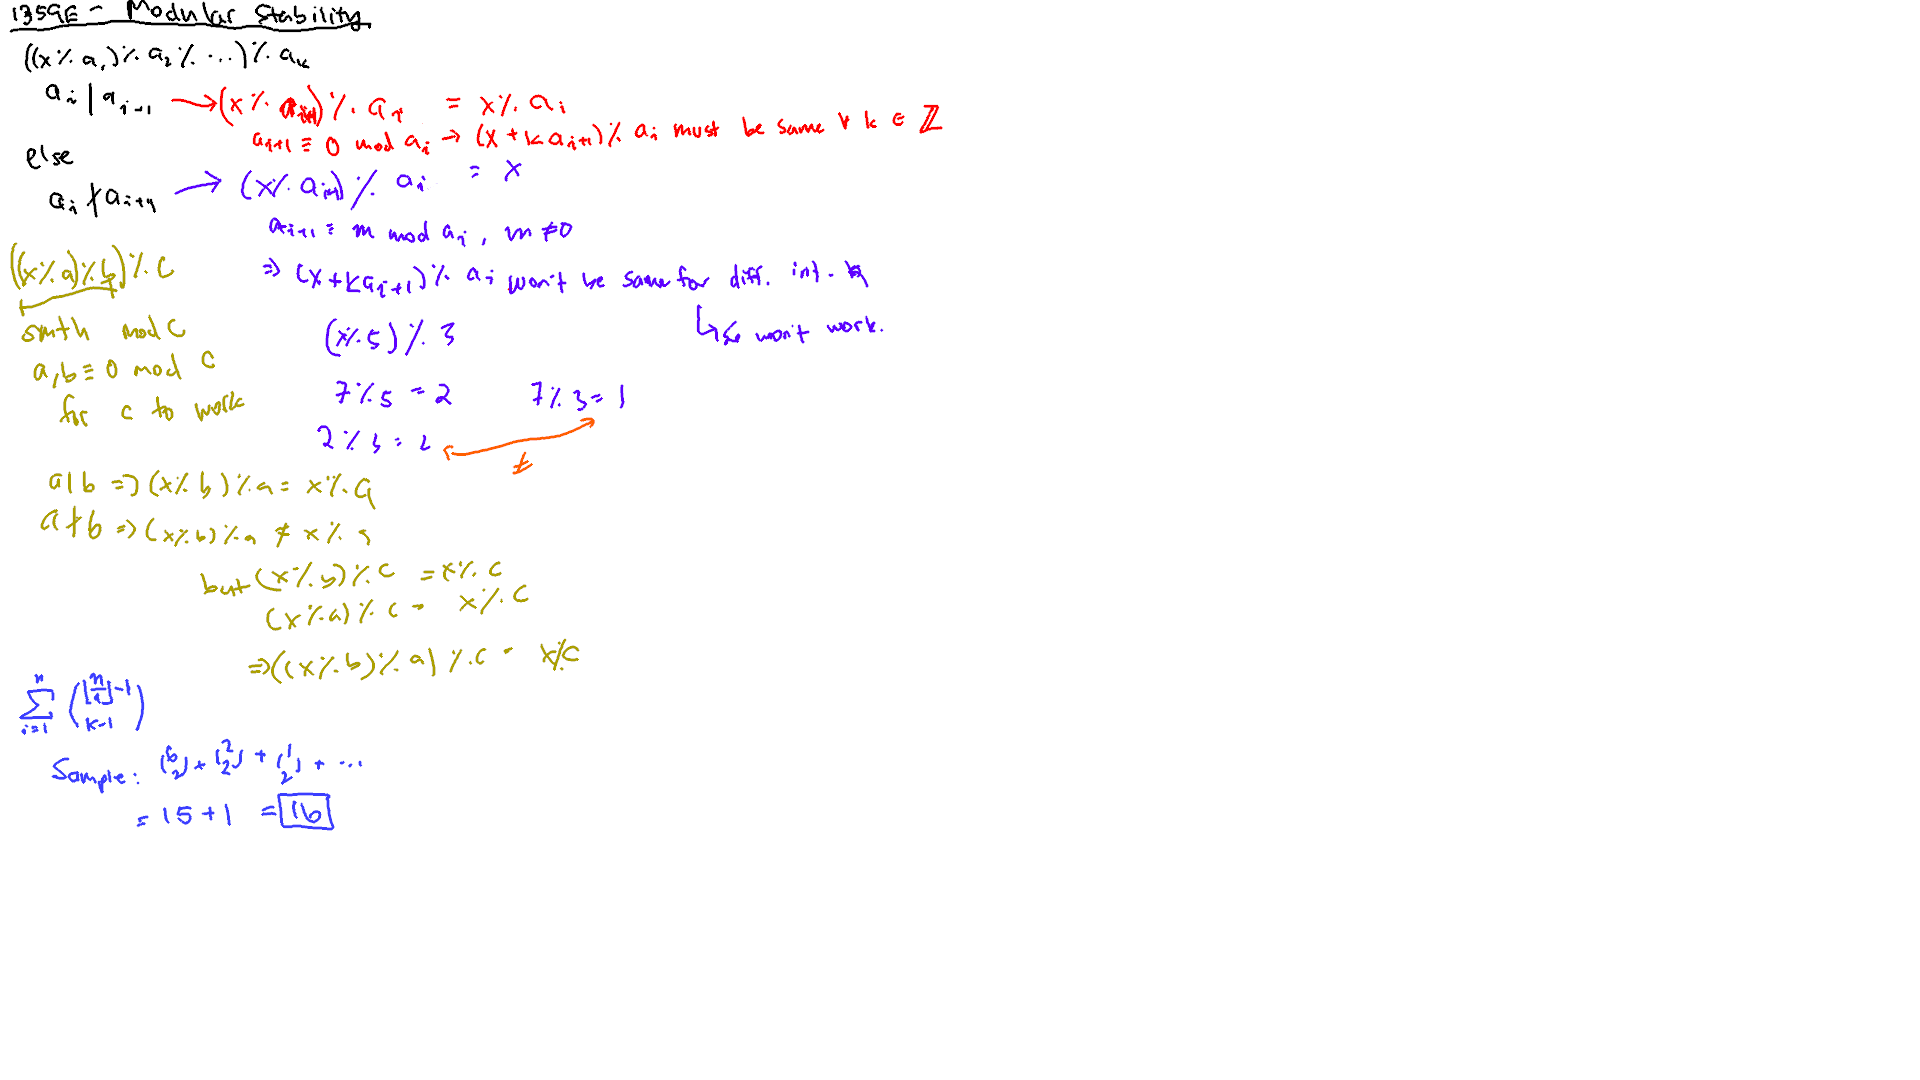 1359E - Modular Stability
((x % a₁) % a₂ % ...) % aₖ
aᵢ | aᵢ₊₁ → (x % aᵢ₊₁) % aᵢ = x % aᵢ
aᵢ₊₁ ≡ 0 mod aᵢ → (x + k aᵢ₊₁) % aᵢ must be same ∀ k ∈ ℤ
else
aᵢ ∤ aᵢ₊₁ → (x % aᵢ₊₁) % aᵢ = x
aᵢ₊₁ ≡ m mod aᵢ, m ≠ 0
⇒ (x + k aᵢ₊₁) % aᵢ won't be same for diff. int. k
↳ so won't work.
(x % 5) % 3
7 % 5 = 2 7 % 3 = 1
2 % 3 = 2
≠
((x % a) % b) % c
smth mod c
a, b ≡ 0 mod c
for c to work
a | b ⇒ (x % b) % a = x % a
a ∤ b ⇒ (x % b) % a ≠ x % a
but (x % b) % c = x % c
(x % a) % c = x % c
⇒ ((x % b) % a) % c = x % c
∑ᵢ₌₁ⁿ (⌊n/i⌋-1 k-1)
Sample: (6 2) + (2 2) + (1 2) + ...
= 15 + 1 = 16